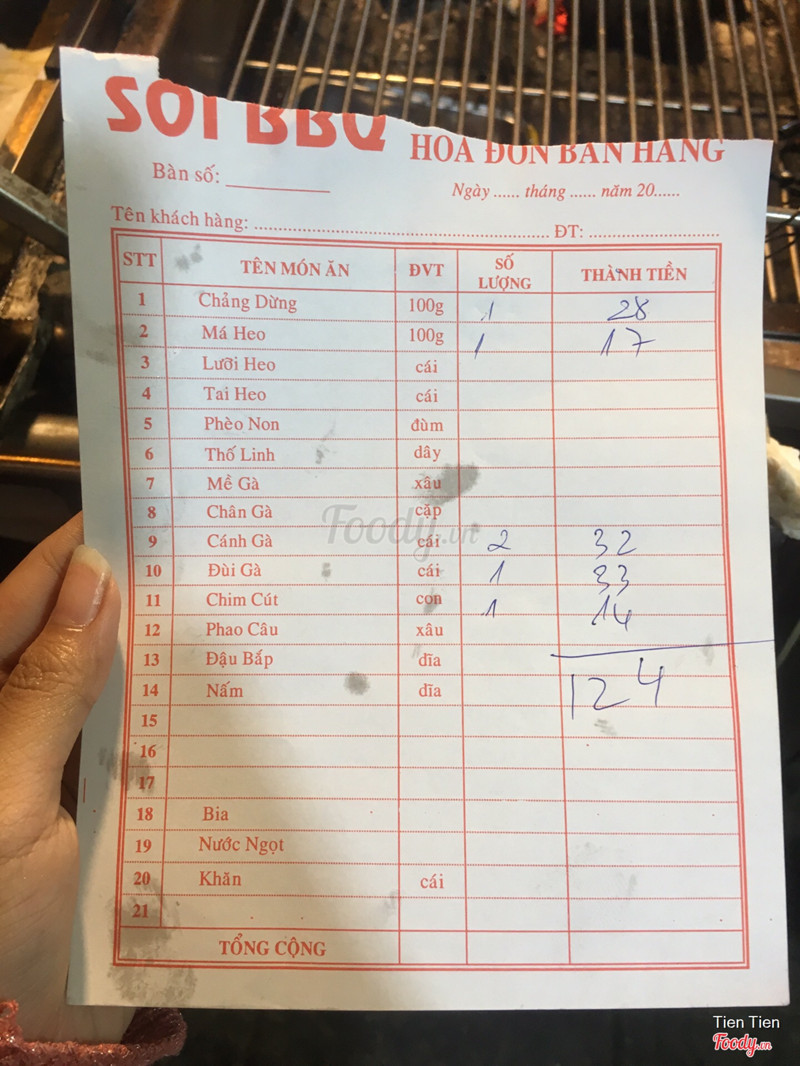 SOI BBQ
HOÁ ĐƠN BÁN HÀNG
Bàn số:
Ngày ...... tháng ...... năm 20......
Tên khách hàng: ........ ĐT: ........
STT TÊN MÓN ĂN ĐVT SỐ LƯỢNG THÀNH TIỀN
1 Chảng Dừng 100g 1 28
2 Má Heo 100g 1 17
3 Lưỡi Heo cái
4 Tai Heo cái
5 Phèo Non đùm
6 Thố Linh dây
7 Mề Gà xâu
8 Chân Gà cặp
9 Cánh Gà cái 2 32
10 Đùi Gà cái 1 33
11 Chim Cút con 1 14
12 Phao Câu xâu
13 Đậu Bắp dĩa
14 Nấm dĩa
124
15
16
17
18 Bia
19 Nước Ngọt
20 Khăn cái
21
TỔNG CỘNG
Foody.vn
Tien Tien
Foody.vn